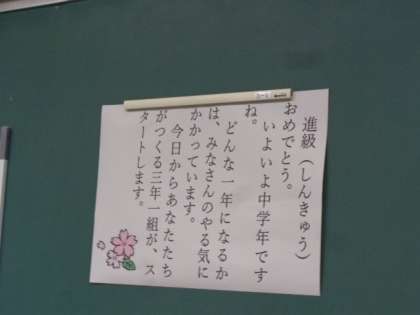 進級（しんきゅう）
おめでとう。
いよいよ中学年です
ね。
どんな一年になるか
は、みなさんのやる気に
かかっています。
今日からあなたたち
がつくる三年一組が、ス
タートします。